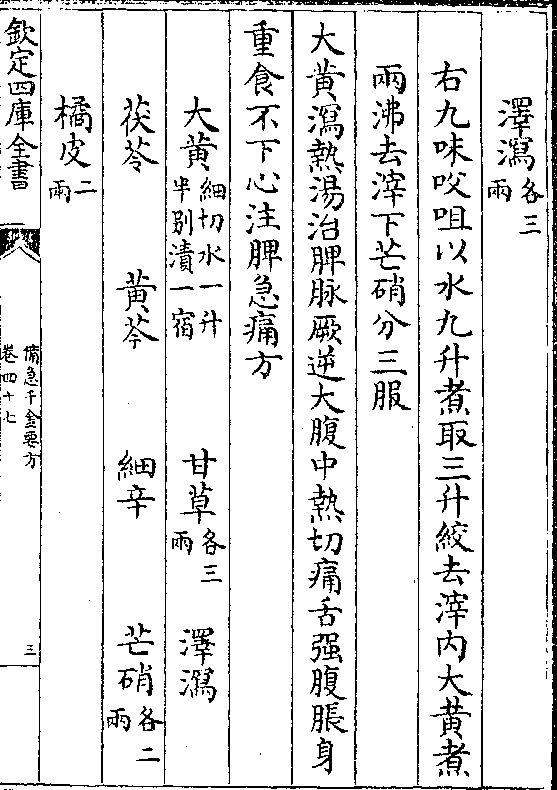 澤瀉各三兩
右九味㕮咀以水九升煮取三升絞去滓内大黄煮
兩沸去滓下芒硝分三服
大黄瀉熱湯治脾脉厥逆大腹中熱切痛舌强腹脹身
重食不下心注脾急痛方
大黄細切水一升半别漬一宿 甘草各三兩 澤瀉
茯苓 黄芩 細辛 芒硝各二兩
橘皮二兩
欽定四庫全書
備急千金要方
卷四十七
三